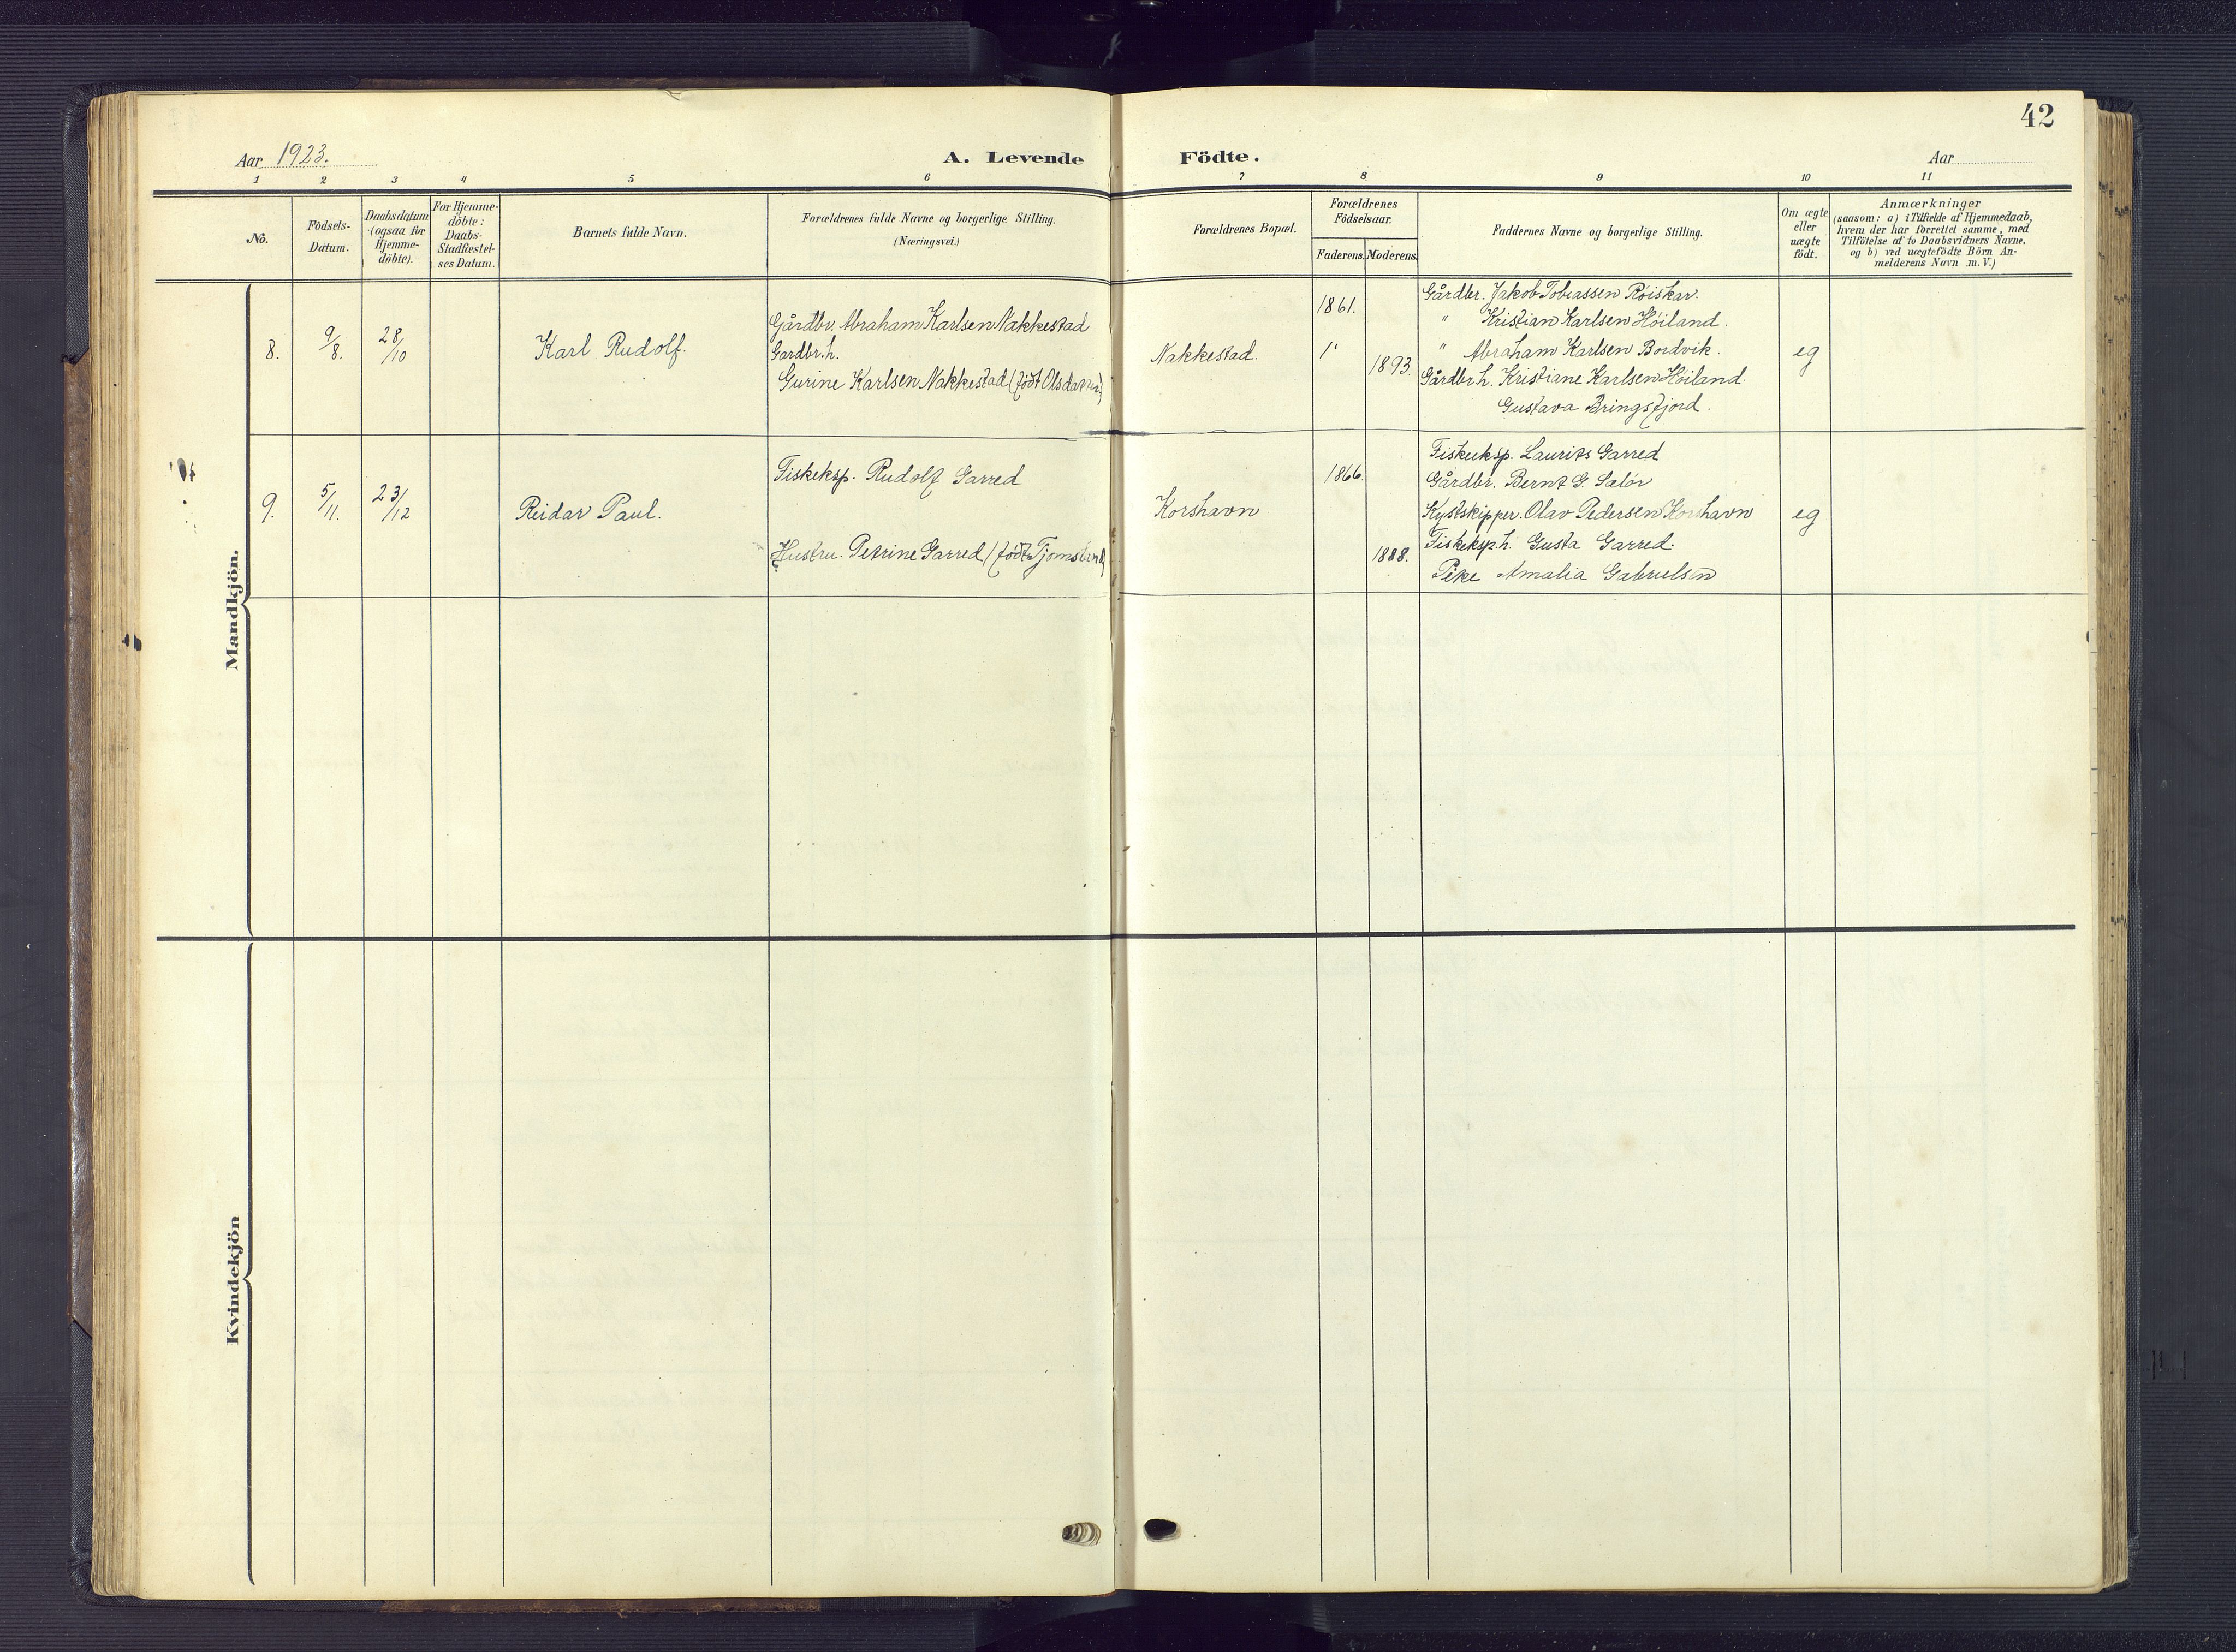 42
Aar 1923.
A. Levende Födte.
Aar
1 2 3 4 5 6 7 8 9 10 11
No.
Födsels-
Datum.
Daabsdatum
(ogsaa for
Hjemme-
döbte).
For Hjemme-
döbte:
Daabs-
Stadfæstel-
ses Datum.
Barnets fulde Navn.
Forældrenes fulde Navne og borgerlige Stilling.
(Næringsvei.)
Forældrenes Bopæl.
Forældrenes
Födselsaar.
Faderens. Moderens.
Faddernes Navne og borgerlige Stilling.
Om ægte
eller
uægte
födt.
Anmærkninger
(saasom: a) i Tilfælde af Hjemmedaab,
hvem der har forrettet samme, med
Tilföielse af to Daabsvidners Navne,
og b) ved uægtefödte Börn An-
melderens Navn m. V.)
Mandkjön.
8.
9/8.
28/10
Karl Rudolf.
Gårdbr. Abraham Karlsen Nakkestad
Gardbr.h.
Gurine Karlsen Nakkestad (födt Olsdatter)
Nakkestad.
1861.
1893.
Gårdbr. Jakob Tobiassen Röiskar.
" Kristian Karlsen Höiland.
" Abraham Karlsen Bordvik.
Gårdbr.h. Kristiane Karlsen Höiland.
Gustava Bringsfjord.
eg
9.
5/11.
23/12
Reidar Paul.
Fiskeksp. Rudolf Garred
Hustru. Petrine Garred (födt Tjomsland)
Korshavn
1866.
1888.
Fiskeeksp. Laurits Garred
Gårdbr. Bernt G. Sælör
Kystskipper. Olav Pedersen Korshavn
Fiskeksp.h. Gusta Garred.
Pike Amalia Gabrielsen
eg
Kvindekjön